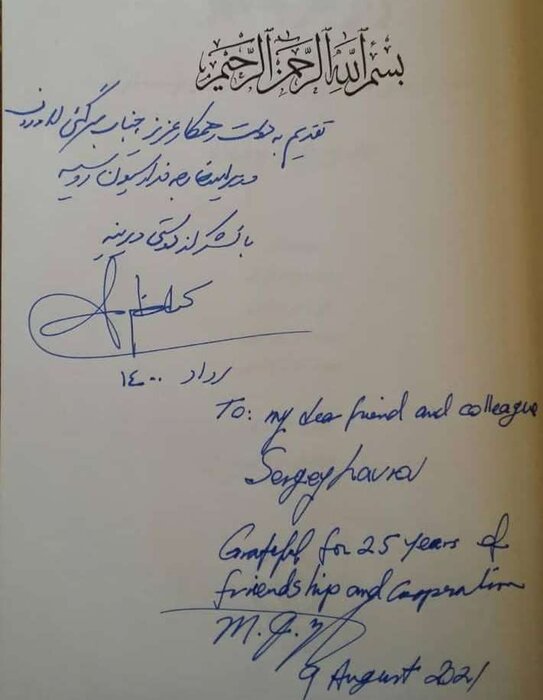 بسم الله الرحمن الرحیم
تقدیم به دوست و همکار عزیز جناب سرگئی لاوروف
وزیر امور خارجه فدراسیون روسیه
با تشکر از دوستی دیرینه
مرداد ۱۴۰۰
To: my dear friend and colleague
Sergey Lavrov
Grateful for 25 years of
friendship and cooperation
M. J. Z
9 August 2021